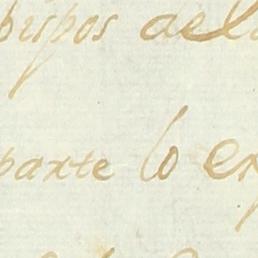 bispos de la
parte lo ex